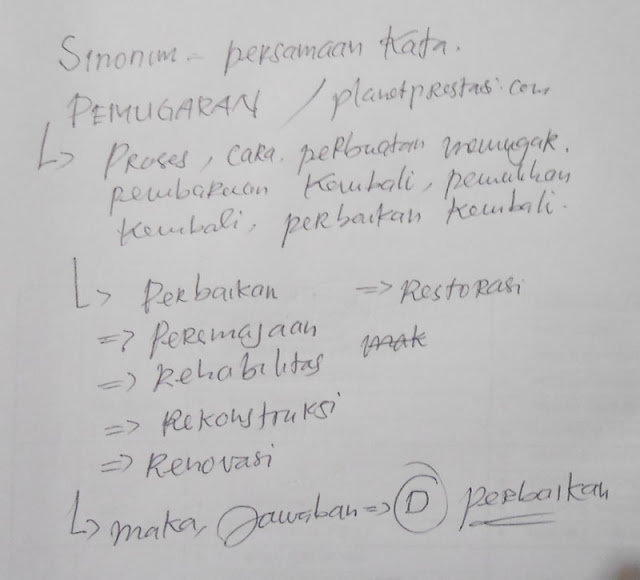 Sinonim = persamaan kata.
PEMUGARAN / planetprestasi.com
↳ Proses, cara, perbuatan memugar.
pembaruan kembali, pemulihan
kembali, perbaikan kembali.
↳ Perbaikan => Restorasi
=> Peremajaan
=> Rehabilitas
=> Rekonstruksi
=> Renovasi
↳ maka, Jawaban => D perbaikan